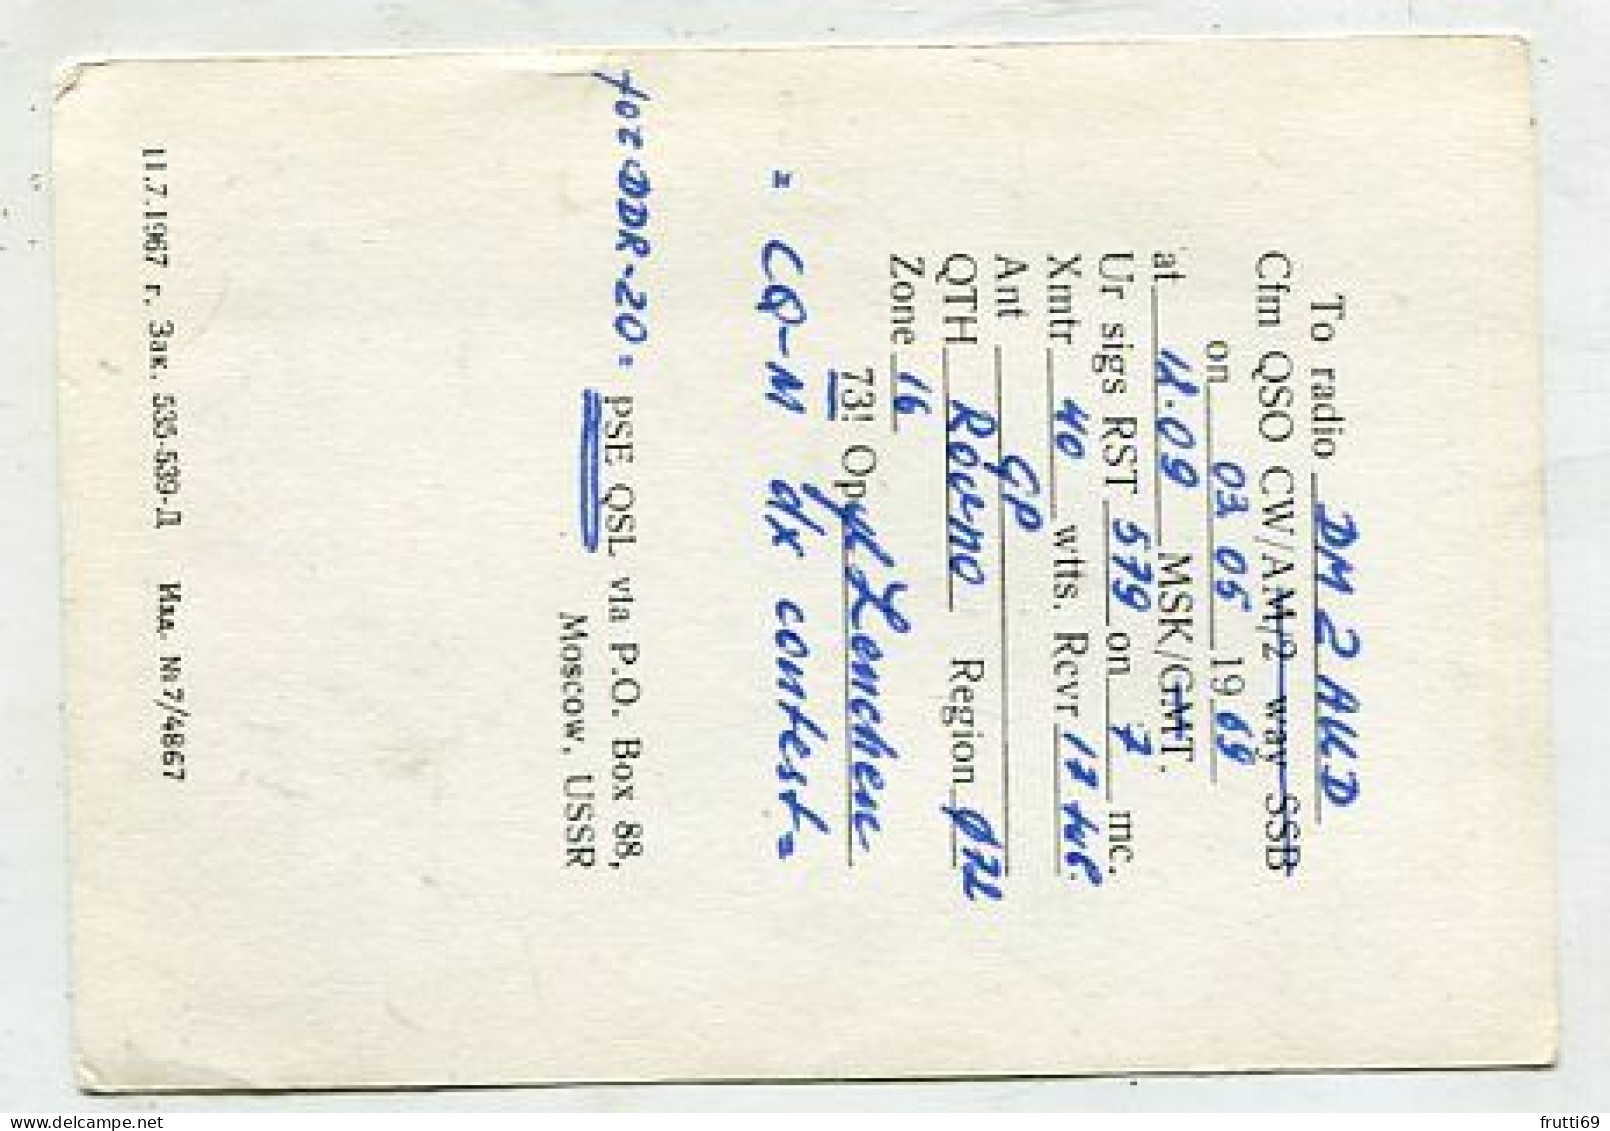 To radio DM 2 AUD
Cfm QSO CW/AM/2 way SSB
on 03 05 1969
at 12.09 MSK/GMT.
Ur sigs RST 579 on 7 mc.
Xmtr 40 wtts. Rcvr 17
Ant GP
QTH Rovno Region
Zone 16
73! Op.
= CQ-M dx contest =
for DDR-20 = PSE QSL via P.O. Box 88,
Moscow, USSR
11.7.1967 г. Зак. 535-539-Л Изд. № 7/4867
frutti69